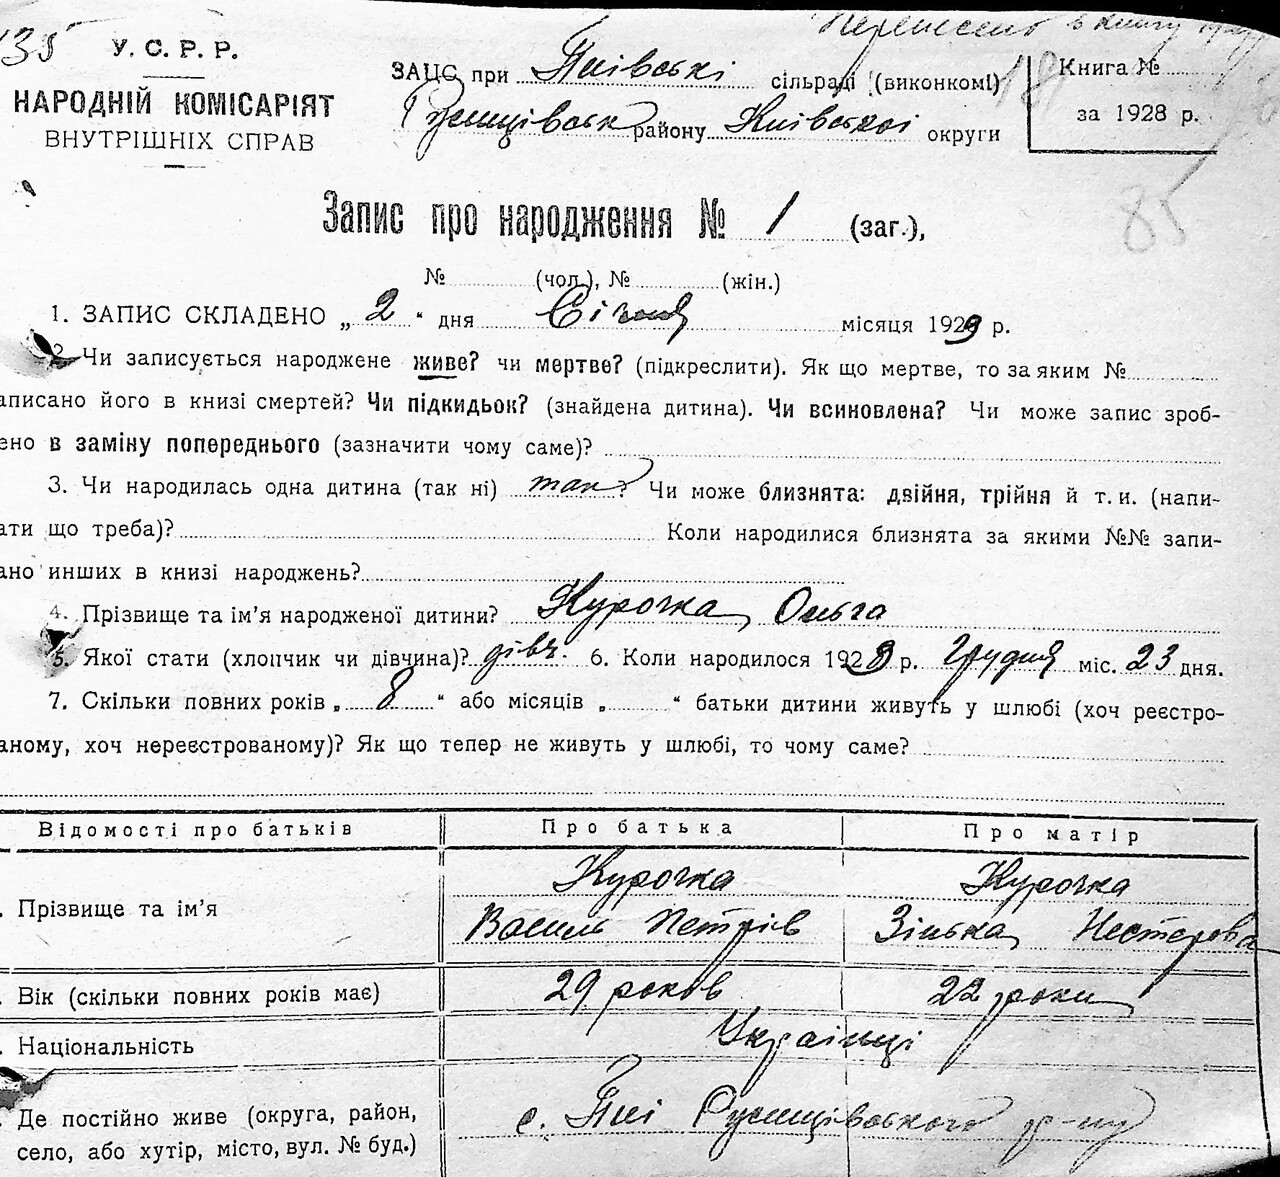 135
У. С. Р. Р.
НАРОДНІЙ КОМІСАРІЯТ
ВНУТРІШНІХ СПРАВ
Перенесено в книгу
ЗАЦС при Пиївські сільраді (виконкомі)
району Київської округи
Книга №
за 1928 р.
85
Запис про народження № 1 (заг.),
№ (чол.), № (жін.)
1. ЗАПИС СКЛАДЕНО „ 2 “ дня Січня місяця 1929 р.
2. Чи записується народжене живе? чи мертве? (підкреслити). Як що мертве, то за яким №
аписано його в книзі смертей? Чи підкидьок? (знайдена дитина). Чи всиновлена? Чи може запис зроб-
ено в заміну попереднього (зазначити чому саме)?
3. Чи народилась одна дитина (так ні) так? Чи може близнята: двійня, трійня й т. и. (напи-
ати що треба)? Коли народилися близнята за якими №№ запи-
ано инших в книзі народжень?
4. Прізвище та ім’я народженої дитини? Курочка Ольга
5. Якої стати (хлопчик чи дівчина)? дівч. 6. Коли народилося 1928 р. Грудня міс. 23 дня.
7. Скільки повних років „ 8 “ або місяців „ “ батьки дитини живуть у шлюбі (хоч реєстро-
аному, хоч нереєстрованому)? Як що тепер не живуть у шлюбі, то чому саме?
Відомості про батьків Про батька Про матір
Курочка Курочка
. Прізвище та ім’я Василь Петрів Зінька Нестерова
. Вік (скільки повних років має) 29 років 22 роки
. Національність Українці
. Де постійно живе (округа, район, с. Пиї р-ну
село, або хутір, місто, вул. № буд.)